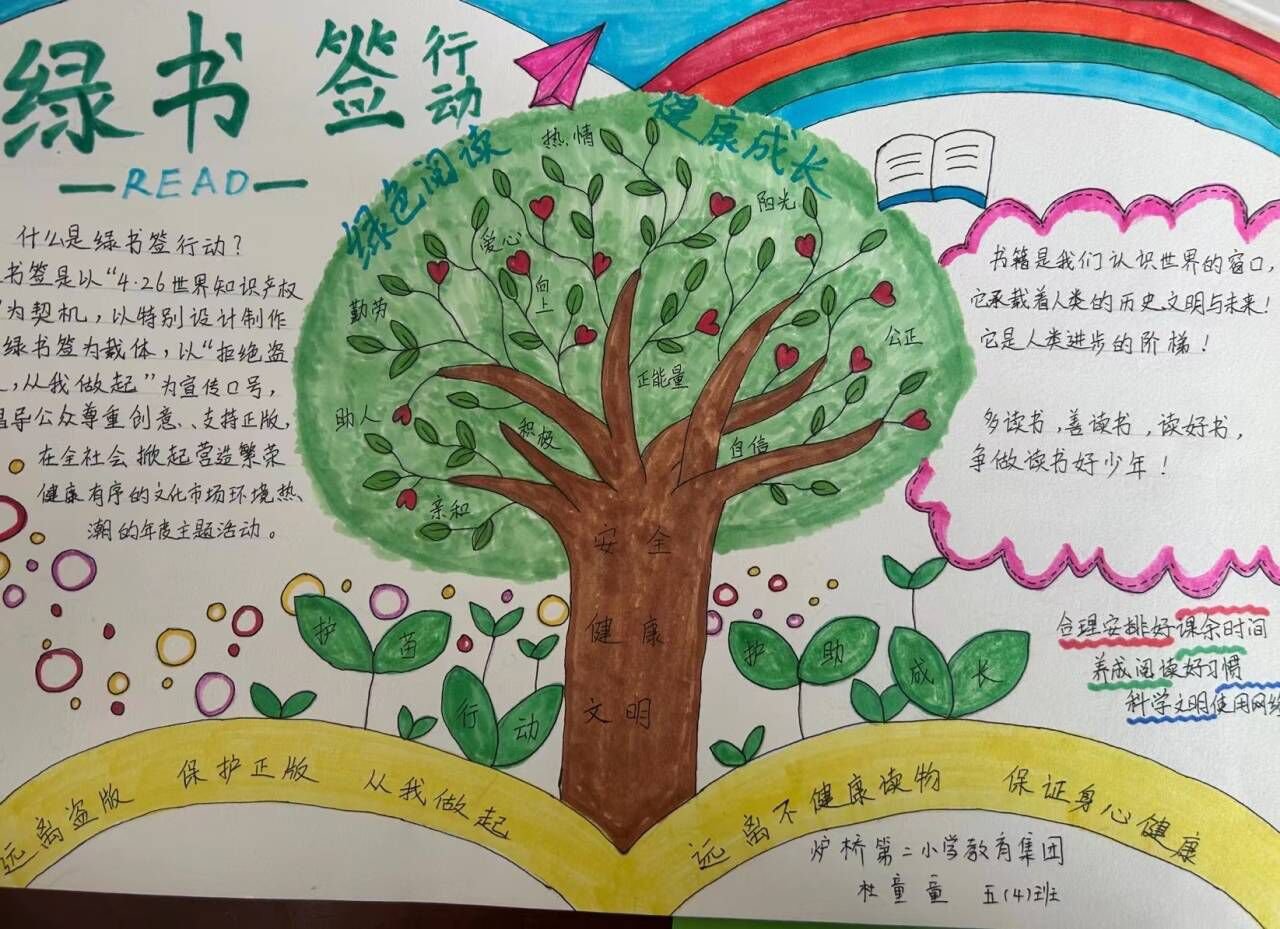 绿书签行动
READ
绿色阅读
健康成长
什么是绿书签行动?
书签是以“4·26世界知识产权
”为契机,以特别设计制作
绿书签为载体,以“拒绝盗
,从我做起”为宣传口号,
倡导公众尊重创意、、支持正版,
在全社会掀起营造繁荣
健康有序的文化市场环境热、
潮的年度主题活动。
热情
阳光
爱心
向上
勤劳
公正
正能量
助人
积极
自信
亲和
安全
健康
文明
书籍是我们认识世界的窗口,
它承载着人类的历史文明与未来!
它是人类进步的阶梯!
多读书,善读书,读好书,
争做读书好少年!
护苗
行动
护助
成长
合理安排好课余时间
养成阅读好习惯
科学文明使用网络
远离盗版 保护正版 从我做起
远离不健康读物 保证身心健康
炉桥第二小学教育集团
杜童童 五(4)班